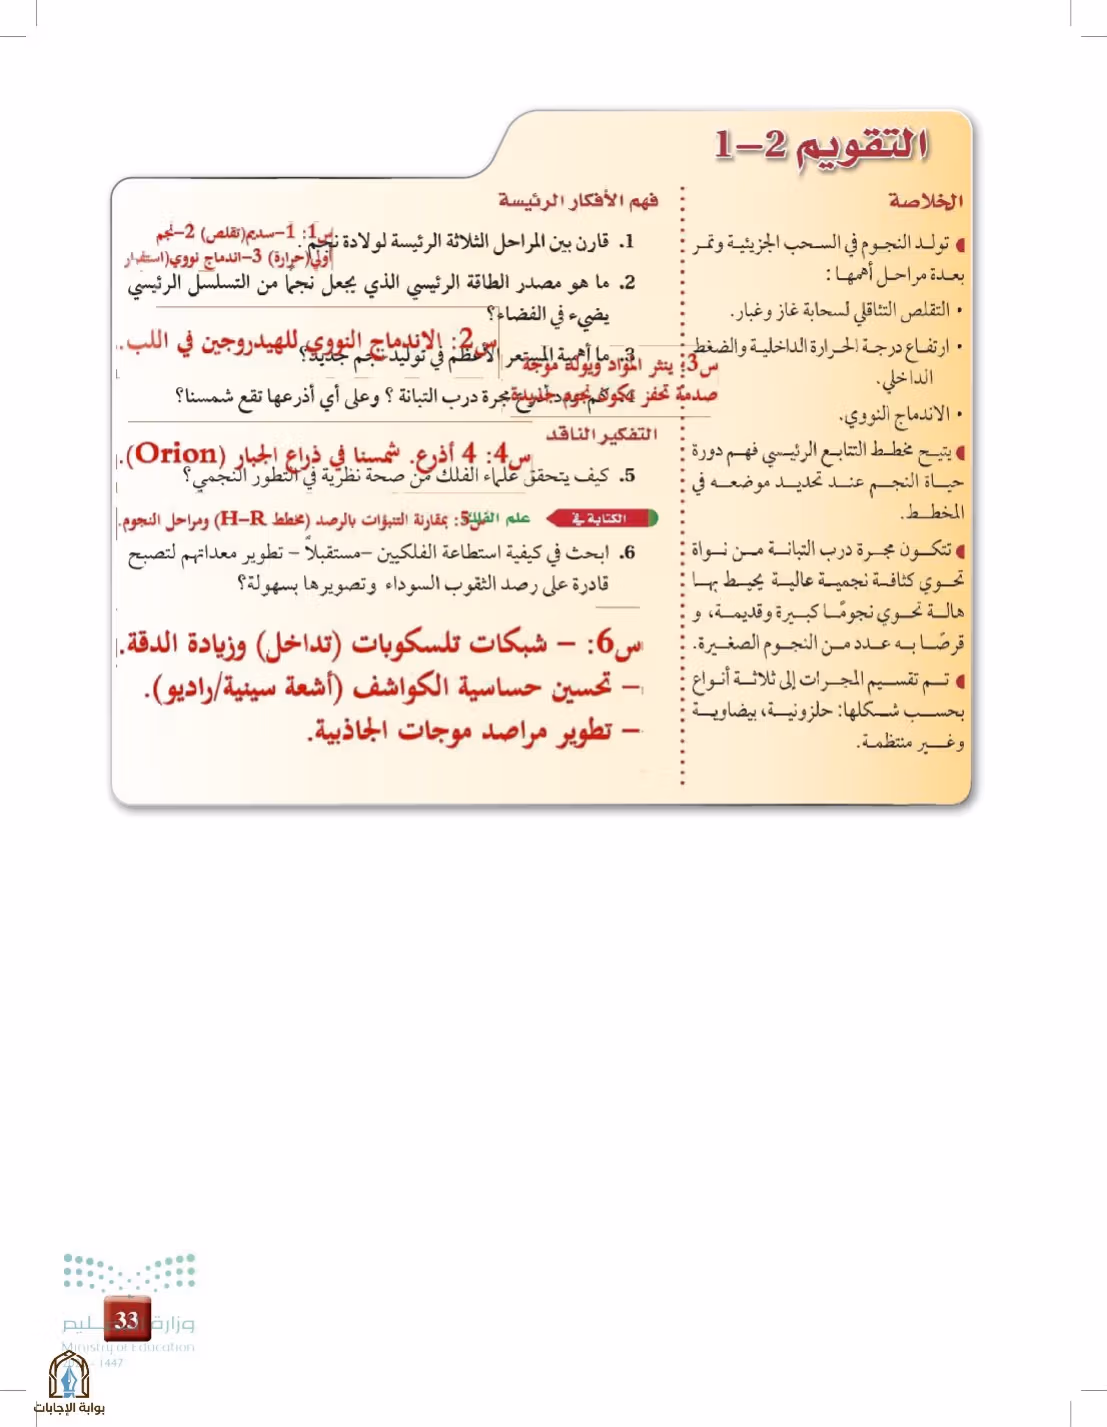 التقويم 2-1
الخلاصة
تولد النجوم في السحب الجزيئية وتمر
بعدة مراحل أهمها:
• التقلص التثاقلي لسحابة غاز وغبار.
• ارتفاع درجة الحرارة الداخلية والضغط
الداخلي.
• الاندماج النووي.
يتيح مخطط التتابع الرئيسي فهم دورة
حياة النجم عند تحديد موضعه في
المخطط.
تتكون مجرة درب التبانة من نواة
تحوي كثافة نجمية عالية يحيط بها
هالة تحوي نجومًا كبيرة وقديمة، و
قرصًا به عدد من النجوم الصغيرة.
تم تقسيم المجرات إلى ثلاثة أنواع
بحسب شكلها: حلزونية، بيضاوية
وغير منتظمة.
فهم الأفكار الرئيسة
1. قارن بين المراحل الثلاثة الرئيسة لولادة نجم.
س1: 1-سديم(تقلص) 2-نجم
أولي(حرارة) 3-اندماج نووي(استقرار
2. ما هو مصدر الطاقة الرئيسي الذي يجعل نجمًا من التسلسل الرئيسي
يضيء في الفضاء؟
س2: الاندماج النووي للهيدروجين في اللب.
3. ما أهمية المستعر الأعظم في توليد نجم جديد؟
س3: ينثر المواد ويولد موجة
صدمة تحفز تكون نجوم جديدة
4. مجرة درب التبانة ؟ وعلى أي أذرعها تقع شمسنا؟
التفكير الناقد
س4: 4 أذرع. شمسنا في ذراع الجبار (Orion).
5. كيف يتحقق علماء الفلك من صحة نظرية في التطور النجمي؟
الكتابة في علم الفلك
س5: بمقارنة التنبؤات بالرصد (مخطط H-R) ومراحل النجوم.
6. ابحث في كيفية استطاعة الفلكيين -مستقبلاً- تطوير معداتهم لتصبح
قادرة على رصد الثقوب السوداء وتصويرها بسهولة؟
س6: - شبكات تلسكوبات (تداخل) وزيادة الدقة.
- تحسين حساسية الكواشف (أشعة سينية/راديو).
- تطوير مراصد موجات الجاذبية.
33
Ministry of Education
- 1447
بوابة الإجابات